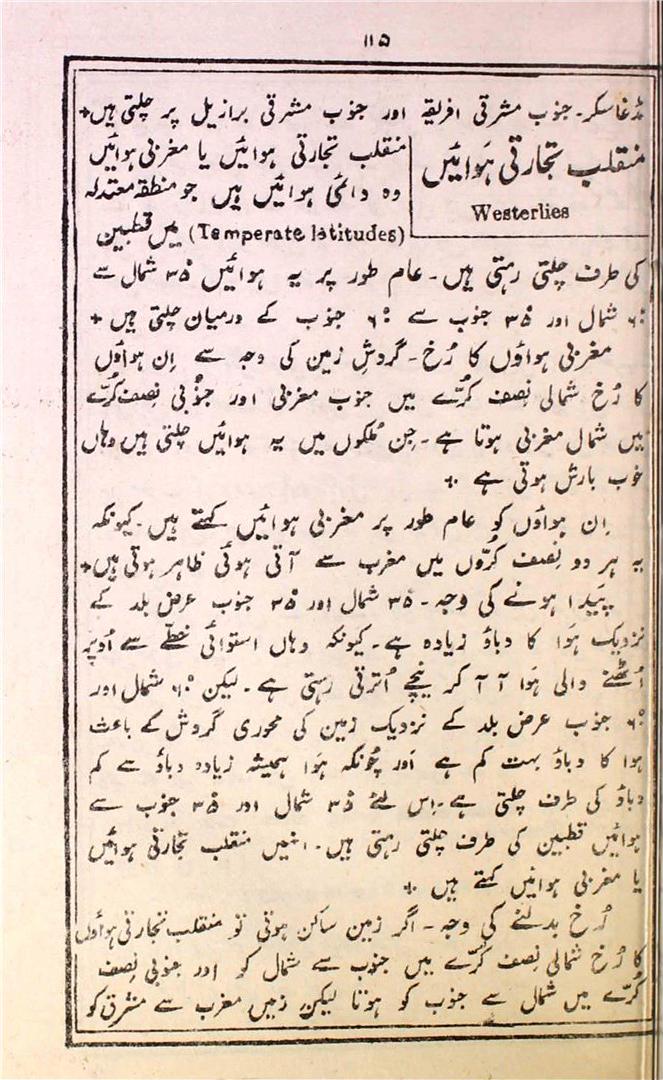 ۱۱۵
مڈغاسکر۔ جنوب مشرقی افریقہ اور جنوب مشرقی برازیل پر چلتی ہیں +
منقلب تجارتی ہَوائیں
Westerlies
منقلب تجارتی ہوائیں یا مغربی ہوائیں
وہ دائمی ہوائیں ہیں جو منطقہ معتدلہ
(Temperate latitudes) میں قطبین
کی طرف چلتی رہتی ہیں۔ عام طور پر یہ ہوائیں ۳۵° شمال سے
۶۰° شمال اور ۳۵° جنوب سے ۶۰° جنوب کے درمیان چلتی ہیں +
مغربی ہواؤں کا رُخ۔ گردشِ زمین کی وجہ سے اِن ہواؤں
کا رُخ شمالی نصف کُرّے میں جنوب مغربی اور جنُوبی نِصف کُرّے
میں شمال مغربی ہوتا ہے۔ جِن مُلکوں میں یہ ہوائیں چلتی ہیں وہاں
خوب بارش ہوتی ہے +
اِن ہواؤں کو عام طور پر مغربی ہوائیں کہتے ہیں۔ کیونکہ
یہ ہر دو نِصف کُرّوں میں مغرب سے آتی ہوئی ظاہر ہوتی ہیں +
پَیدا ہونے کی وجہ۔ ۳۵° شمال اور ۳۵° جنوب عرض بلد کے
نزدیک ہَوا کا دباؤ زیادہ ہے۔ کیونکہ وہاں استوائی خطّے سے اُوپر
اُٹھنے والی ہَوا آ آ کر نیچے اُترتی رہتی ہے۔ لیکن ۶۰° شمال اور
۶۰° جنوب عرض بلد کے نزدیک زمین کی محوری گردش کے باعث
ہوا کا دباؤ بہت کم ہے اَور چُونکہ ہَوا ہمیشہ زیادہ دباؤ سے کم
دباؤ کی طرف چلتی ہے۔ اِس لئے ۳۵° شمال اور ۳۵° جنوب سے
ہوائیں قطبین کی طرف چلتی رہتی ہیں۔ انہیں منقلب تجارتی ہوائیں
یا مغربی ہوائیں کہتے ہیں +
رُخ بدلنے کی وجہ۔ اگر زمین ساکن ہوتی تو منقلب تجارتی ہواؤں
کا رُخ شمالی نصف کُرّے میں جنوب سے شمال کو اور جنوبی نِصف
کُرّے میں شمال سے جنوب کو ہوتا لیکن زمین مغرب سے مشرق کو